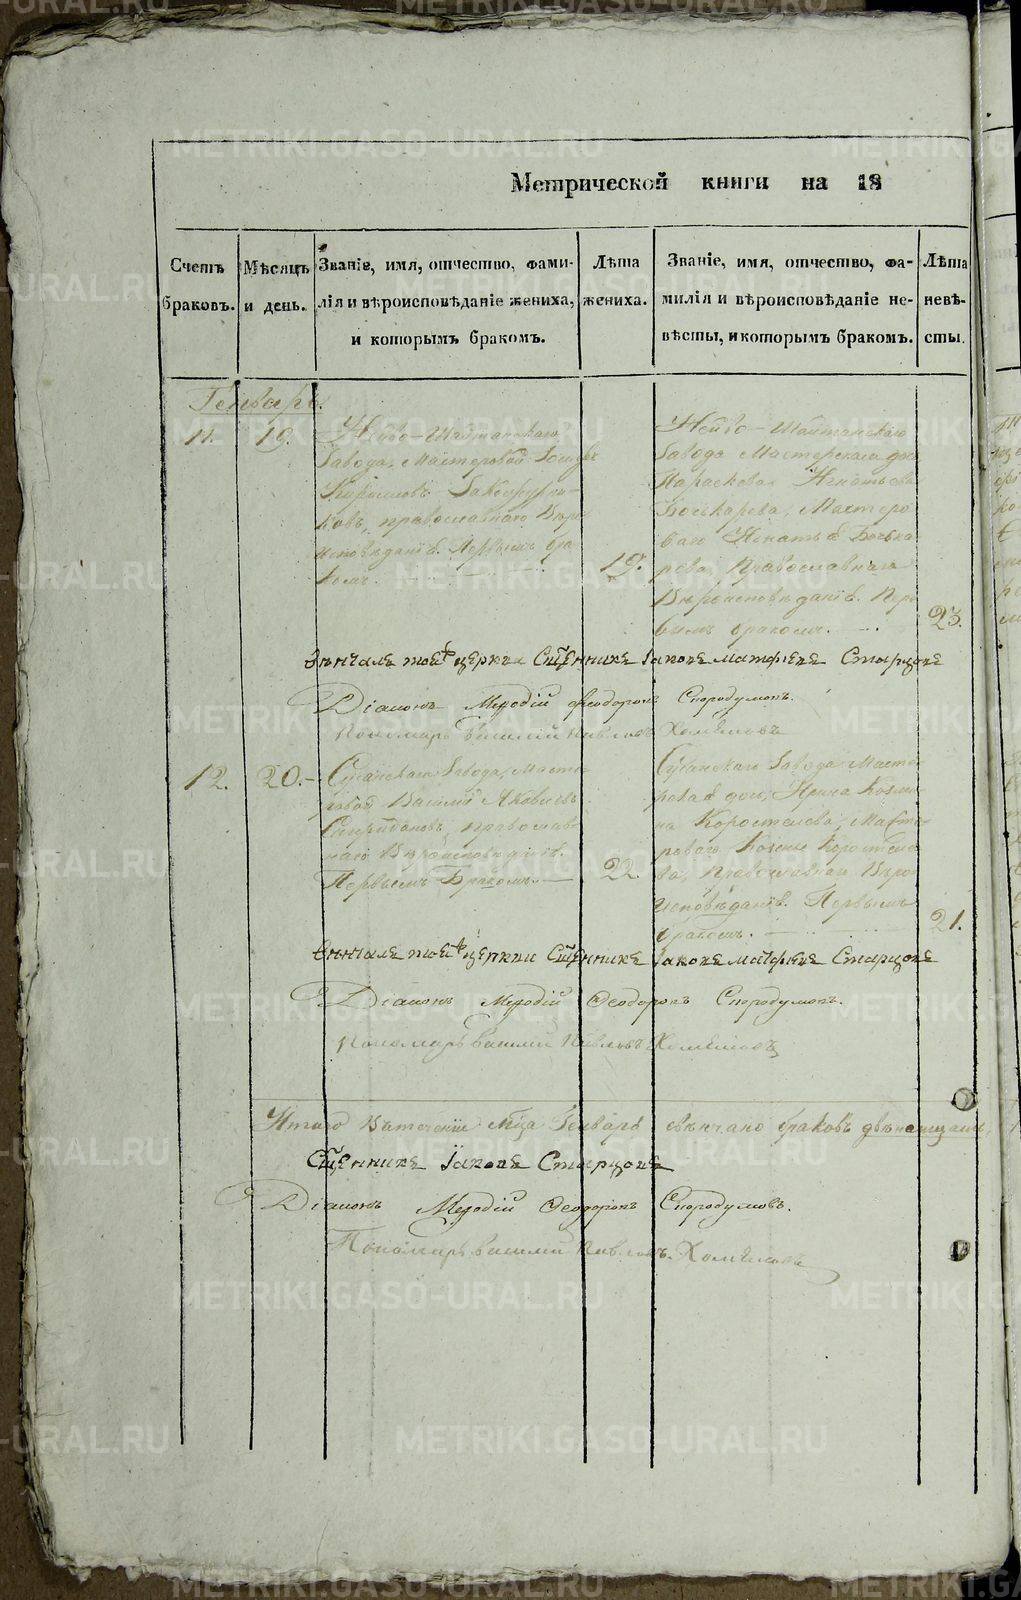 Метрической книги на 18
Счетъ браковъ.
Мѣсяцъ и день.
Званіе, имя, отчество, фами-
лія и вѣроисповѣданіе жениха,
и которымъ бракомъ.
Лѣта
жениха.
Званіе, имя, отчество, фа-
милія и вѣроисповѣданіе не-
вѣсты, и которымъ бракомъ.
Лѣта
невѣ-
сты.
Генварь.
11. 19.
Нейво-Шайтанскаго
Завода, Мастеровой
Кириловъ
ковъ, православнаго Вѣро
исповѣданія. Первымъ бра
комъ.
19.
Нейво-Шайтанскаго
Завода Мастерская дочь
Параскева Игнатьева
Бочкарева, Мастеро
ваго Игнатья Бочка
рева, Православнаго
Вѣроисповѣданія. Пер
вымъ бракомъ.
23.
Вѣнчалъ тоя церкви Сщенникъ Іаковъ Матфіевъ Старцовъ
Діаконъ Меѳодій Ѳеодоровъ Скородумовъ.
Пономарь Василій Павловъ Хомяковъ
12. 20.
Сусанскаго Завода, Масте
ровой Василій Яковлевъ
Спиридоновъ, православ
наго Вѣроисповѣданія.
Первымъ Бракомъ.
22.
Сусанскаго Завода Масте
рская дочь, Ирина Козми
на Коростелева, Масте
роваго Козмы Коростеле
ва, Православнаго Вѣро
исповѣданія. Первымъ
бракомъ.
21.
Вѣнчалъ тоя церкви Сщенникъ Іаковъ Матфіевъ Старцовъ
Діаконъ Меѳодій Ѳеодоровъ Скородумовъ.
Пономарь Василій Павловъ Хомяковъ
Итого Втеченіи Мца Генваря вѣнчано браковъ двѣнатцать.
Сщенникъ Іаковъ Старцовъ
Діаконъ Меѳодій Ѳеодоровъ Скородумовъ.
Пономарь Василій Павловъ Хомяковъ
METRIKI.GASO-URAL.RU